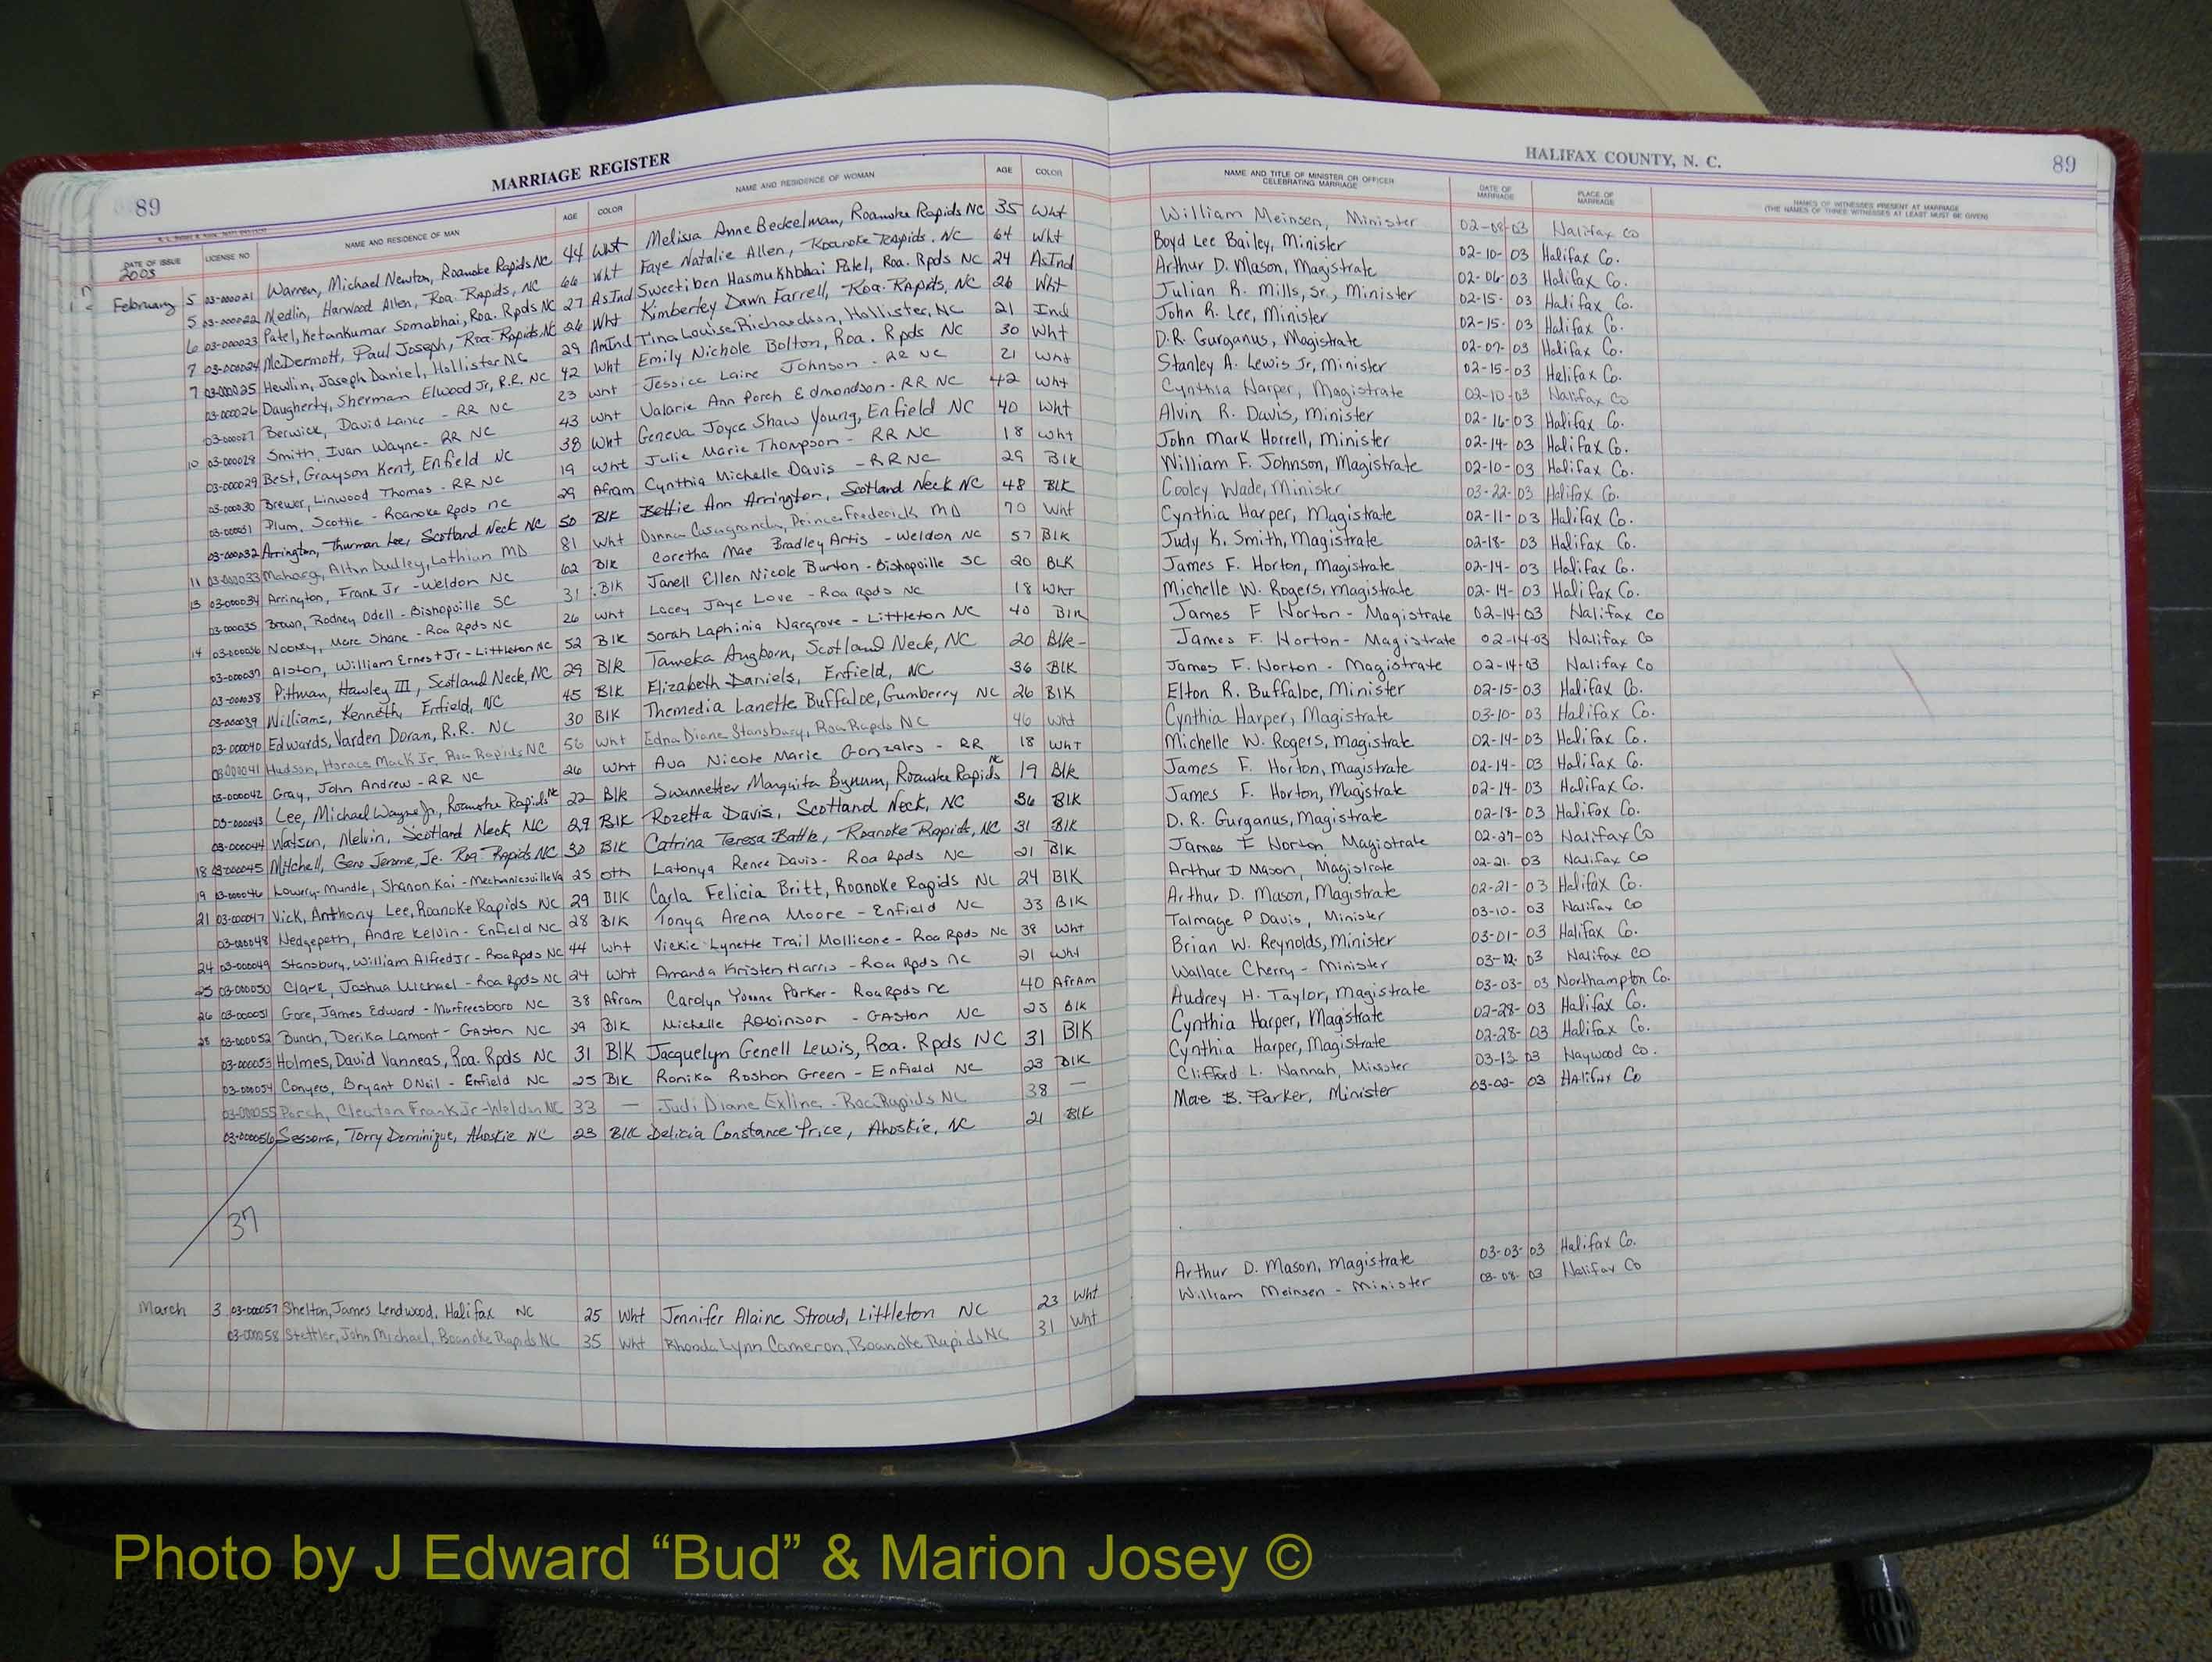 MARRIAGE REGISTER
HALIFAX COUNTY, N. C.
89
89
DATE OF ISSUE LICENSE NO NAME AND RESIDENCE OF MAN AGE COLOR NAME AND RESIDENCE OF WOMAN AGE COLOR NAME AND TITLE OF MINISTER OR OFFICER CELEBRATING MARRIAGE DATE OF MARRIAGE PLACE OF MARRIAGE NAMES OF WITNESSES PRESENT AT MARRIAGE (THE NAMES OF THREE WITNESSES AT LEAST MUST BE GIVEN)
2003
February 5 03-000021 Warren, Michael Newton, Roanoke Rapids NC 44 Wht Melissa Anne Beckelman, Roanoke Rapids NC 35 Wht William Meinsen, Minister 02-08-03 Halifax Co
5 03-000022 Medlin, Harwood Allen, Roa. Rapids, NC 66 Wht Faye Natalie Allen, Roanoke Rapids, NC 64 Wht Boyd Lee Bailey, Minister 02-10-03 Halifax Co.
6 03-000023 Patel, Ketankumar Somabhai, Roa. Rpds NC 27 AsInd Sweetiben Hasmukhbhai Patel, Roa. Rpds NC 24 AsInd Arthur D. Mason, Magistrate 02-06-03 Halifax Co.
7 03-000024 McDermott, Paul Joseph, Roa. Rapids, NC 26 Wht Kimberley Dawn Farrell, Roa. Rapids, NC 26 Wht Julian R. Mills, Sr., Minister 02-15-03 Halifax Co.
7 03-000025 Hewlin, Joseph Daniel, Hollister NC 29 AmInd Tina Louise Richardson, Hollister, NC 21 Ind John R. Lee, Minister 02-15-03 Halifax Co.
03-000026 Daugherty, Sherman Elwood Jr, R.R. NC 42 Wht Emily Nichole Bolton, Roa. Rpds NC 30 Wht D.R. Gurganus, Magistrate 02-07-03 Halifax Co.
03-000027 Berwick, David Lance - RR NC 23 Wht Jessica Laine Johnson - RR NC 21 Wht Stanley A. Lewis Jr, Minister 02-15-03 Halifax Co.
10 03-000028 Smith, Ivan Wayne - RR NC 43 Wht Valarie Ann Porch Edmondson - RR NC 42 Wht Cynthia Harper, Magistrate 02-10-03 Halifax Co
03-000029 Best, Grayson Kent, Enfield NC 38 Wht Geneva Joyce Shaw Young, Enfield NC 40 Wht Alvin R. Davis, Minister 02-16-03 Halifax Co.
03-000030 Brewer, Linwood Thomas - RR NC 19 Wht Julie Marie Thompson - RR NC 18 Wht John Mark Horrell, Minister 02-14-03 Halifax Co.
03-000031 Plum, Scottie - Roanoke Rpds NC 29 Afram Cynthia Michelle Davis - RR NC 29 Blk William F. Johnson, Magistrate 02-10-03 Halifax Co.
03-000032 Arrington, Thurman Lee, Scotland Neck NC 50 Blk Bettie Ann Arrington, Scotland Neck NC 48 BLK Cooley Wade, Minister 03-22-03 Halifax Co.
11 03-000033 Alton Dudley, Lothian MD 81 Wht Donna Prince Frederick MD 70 Wht Cynthia Harper, Magistrate 02-11-03 Halifax Co.
13 03-000034 Arrington, Frank Jr - Weldon NC 62 Blk Coretha Mae Bradley Artis - Weldon NC 57 Blk Judy K. Smith, Magistrate 02-18-03 Halifax Co.
03-000035 Brown, Rodney Odell - Bishopville SC 31 Blk Janell Ellen Nicole Burton - Bishopville SC 20 BLK James F. Horton, Magistrate 02-14-03 Halifax Co.
14 03-000036 Marc Shane - Roa Rpds NC 26 Wht Lacey Jaye Love - Roa Rpds NC 18 WhT Michelle W. Rogers, magistrate 02-14-03 Halifax Co.
03-000037 Alston, William Ernest Jr - Littleton NC 52 Blk Sarah Laphinia Hargrove - Littleton NC 40 Blk James F Horton - Magistrate 02-14-03 Halifax Co
03-000038 Pittman, Hawley III, Scotland Neck, NC 29 Blk Tameka Scotland Neck, NC 20 Blk- James F. Horton - Magistrate 02-14-03 Halifax Co
03-000039 Williams, Kenneth, Enfield, NC 45 Blk Elizabeth Daniels, Enfield, NC 36 BLK James F. Horton - Magistrate 02-14-03 Halifax Co
03-000040 Edwards, Varden Doran, R.R. NC 30 Blk Themedia Lanette Buffaloe, Gumberry NC 26 BlK Elton R. Buffaloe, Minister 02-15-03 Halifax Co.
03-000041 Hudson, Horace Mack Jr, Roa Rapids NC 56 Wht Edna Diane Stansbury, Roa Rapids NC 46 Wht Cynthia Harper, Magistrate 03-10-03 Halifax Co.
03-000042 Gray, John Andrew - RR NC 26 Wht Ava Nicole Marie Gonzales - RR 18 WhT Michelle W. Rogers, magistrate 02-14-03 Halifax Co.
03-000043 Lee, Michael Wayne Jr, Roanoke Rapids NC 22 Blk Swannetter Marquita Bynum, Roanoke Rapids NC 19 Blk James F. Horton, Magistrate 02-14-03 Halifax Co.
03-000044 Watson, Melvin, Scotland Neck, NC 29 BlK Rozetta Davis, Scotland Neck, NC 36 BlK James F. Horton, Magistrate 02-14-03 Halifax Co.
18 03-000045 Mitchell, Gene Jerome, Jr. Roa. Rapids NC 30 Blk Catrina Teresa Battle, Roanoke Rapids, NC 31 Blk D. R. Gurganus, Magistrate 02-18-03 Halifax Co.
19 03-000046 Lowry-Mundle, Shanon Kai - Mechanicsville Va 25 Oth Latonya Renee Davis - Roa Rpds NC 21 Blk James F Horton, Magistrate 02-27-03 Halifax Co
21 03-000047 Vick, Anthony Lee, Roanoke Rapids NC 29 Blk Carla Felicia Britt, Roanoke Rapids NC 24 BlK Arthur D Mason, Magistrate 02-21-03 Halifax Co
03-000048 Hedgepeth, Andre Kelvin - Enfield NC 28 Blk Tonya Arena Moore - Enfield NC 33 Blk Arthur D. Mason, Magistrate 02-21-03 Halifax Co.
24 03-000049 Stansbury, William Alfred Jr - Roa Rpds NC 44 Wht Vickie Lynette Trail Mollicone - Roa Rpds NC 38 Wht Talmage P Davis, Minister 03-10-03 Halifax Co
25 03-000050 Clark, Joshua Michael - Roa Rpds NC 24 Wht Amanda Kristen Harris - Roa Rpds NC 21 Wht Brian W. Reynolds, Minister 03-01-03 Halifax Co.
26 03-000051 Gore, James Edward - Murfreesboro NC 38 Afram Carolyn Yvonne Parker - Roa Rpds NC 40 AfrAm Wallace Cherry - Minister 03-12-03 Halifax Co
28 03-000052 Bunch, Derika Lamont - Gaston NC 29 Blk Michelle Robinson - Gaston NC 25 Blk Audrey H. Taylor, Magistrate 03-03-03 Northampton Co.
03-000053 Holmes, David Vanneas, Roa. Rpds NC 31 BlK Jacquelyn Genell Lewis, Roa. Rpds NC 31 BlK Cynthia Harper, Magistrate 02-28-03 Halifax Co.
03-000054 Conyers, Bryant ONeil - Enfield NC 25 Blk Ronika Roshon Green - Enfield NC 23 Blk Cynthia Harper, Magistrate 02-28-03 Halifax Co.
03-000055 Porch, Cleaton Frank Jr - Weldon NC 33 — Judi Diane Exline - Roa Rapids NC 38 — Clifford L. Hannah, Minister 03-13-03 Haywood Co.
03-000056 Sessoms, Torry Dominique, Ahoskie NC 23 Blk Delicia Constance Price, Ahoskie, NC 21 Blk Mae B. Parker, Minister 03-02-03 Halifax Co
37
March 3 03-000057 Shelton, James Lendwood, Halifax NC 25 Wht Jennifer Alaine Stroud, Littleton NC 23 Wht Arthur D. Mason, Magistrate 03-03-03 Halifax Co.
03-000058 Stettler, John Michael, Roanoke Rapids NC 35 Wht Rhonda Lynn Cameron, Roanoke Rapids NC 31 Wht William Meinsen - Minister 03-08-03 Halifax Co
Photo by J Edward “Bud” & Marion Josey ©